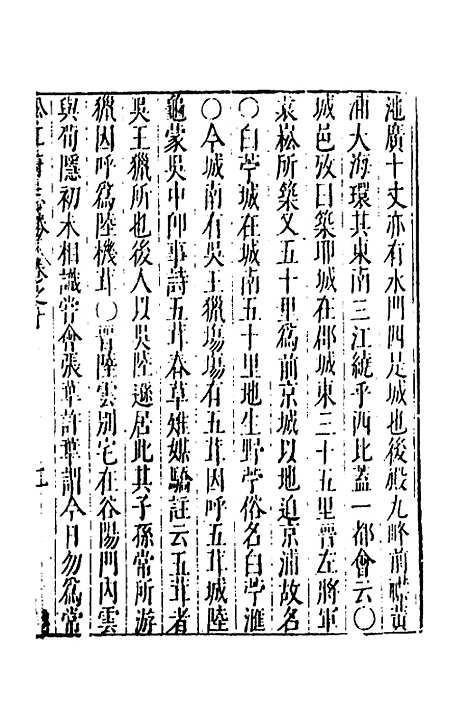 池廣十丈亦有水門四是城也後殿九峰前聯黃
浦大海環其東南三江繞乎西北蓋一都會云〇
城邑攷曰築耶城在郡城東三十五里晉左將軍
袁崧所築又五十里爲前京城以地迫京浦故名
〇白苧城在城南五十里地生野苧俗名白苧滙
〇今城南有吳王獵場場有五茸因呼五茸城陸
龜蒙吳中卽事詩五茸春草雉媒驕註云五茸者
吳王獵所也後人以吳陸遜居此其子孫常所游
獵因呼爲陸機茸〇晉陸雲別宅在谷陽門內雲
與荀隱初未相識嘗會張華許華謂今日勿爲常